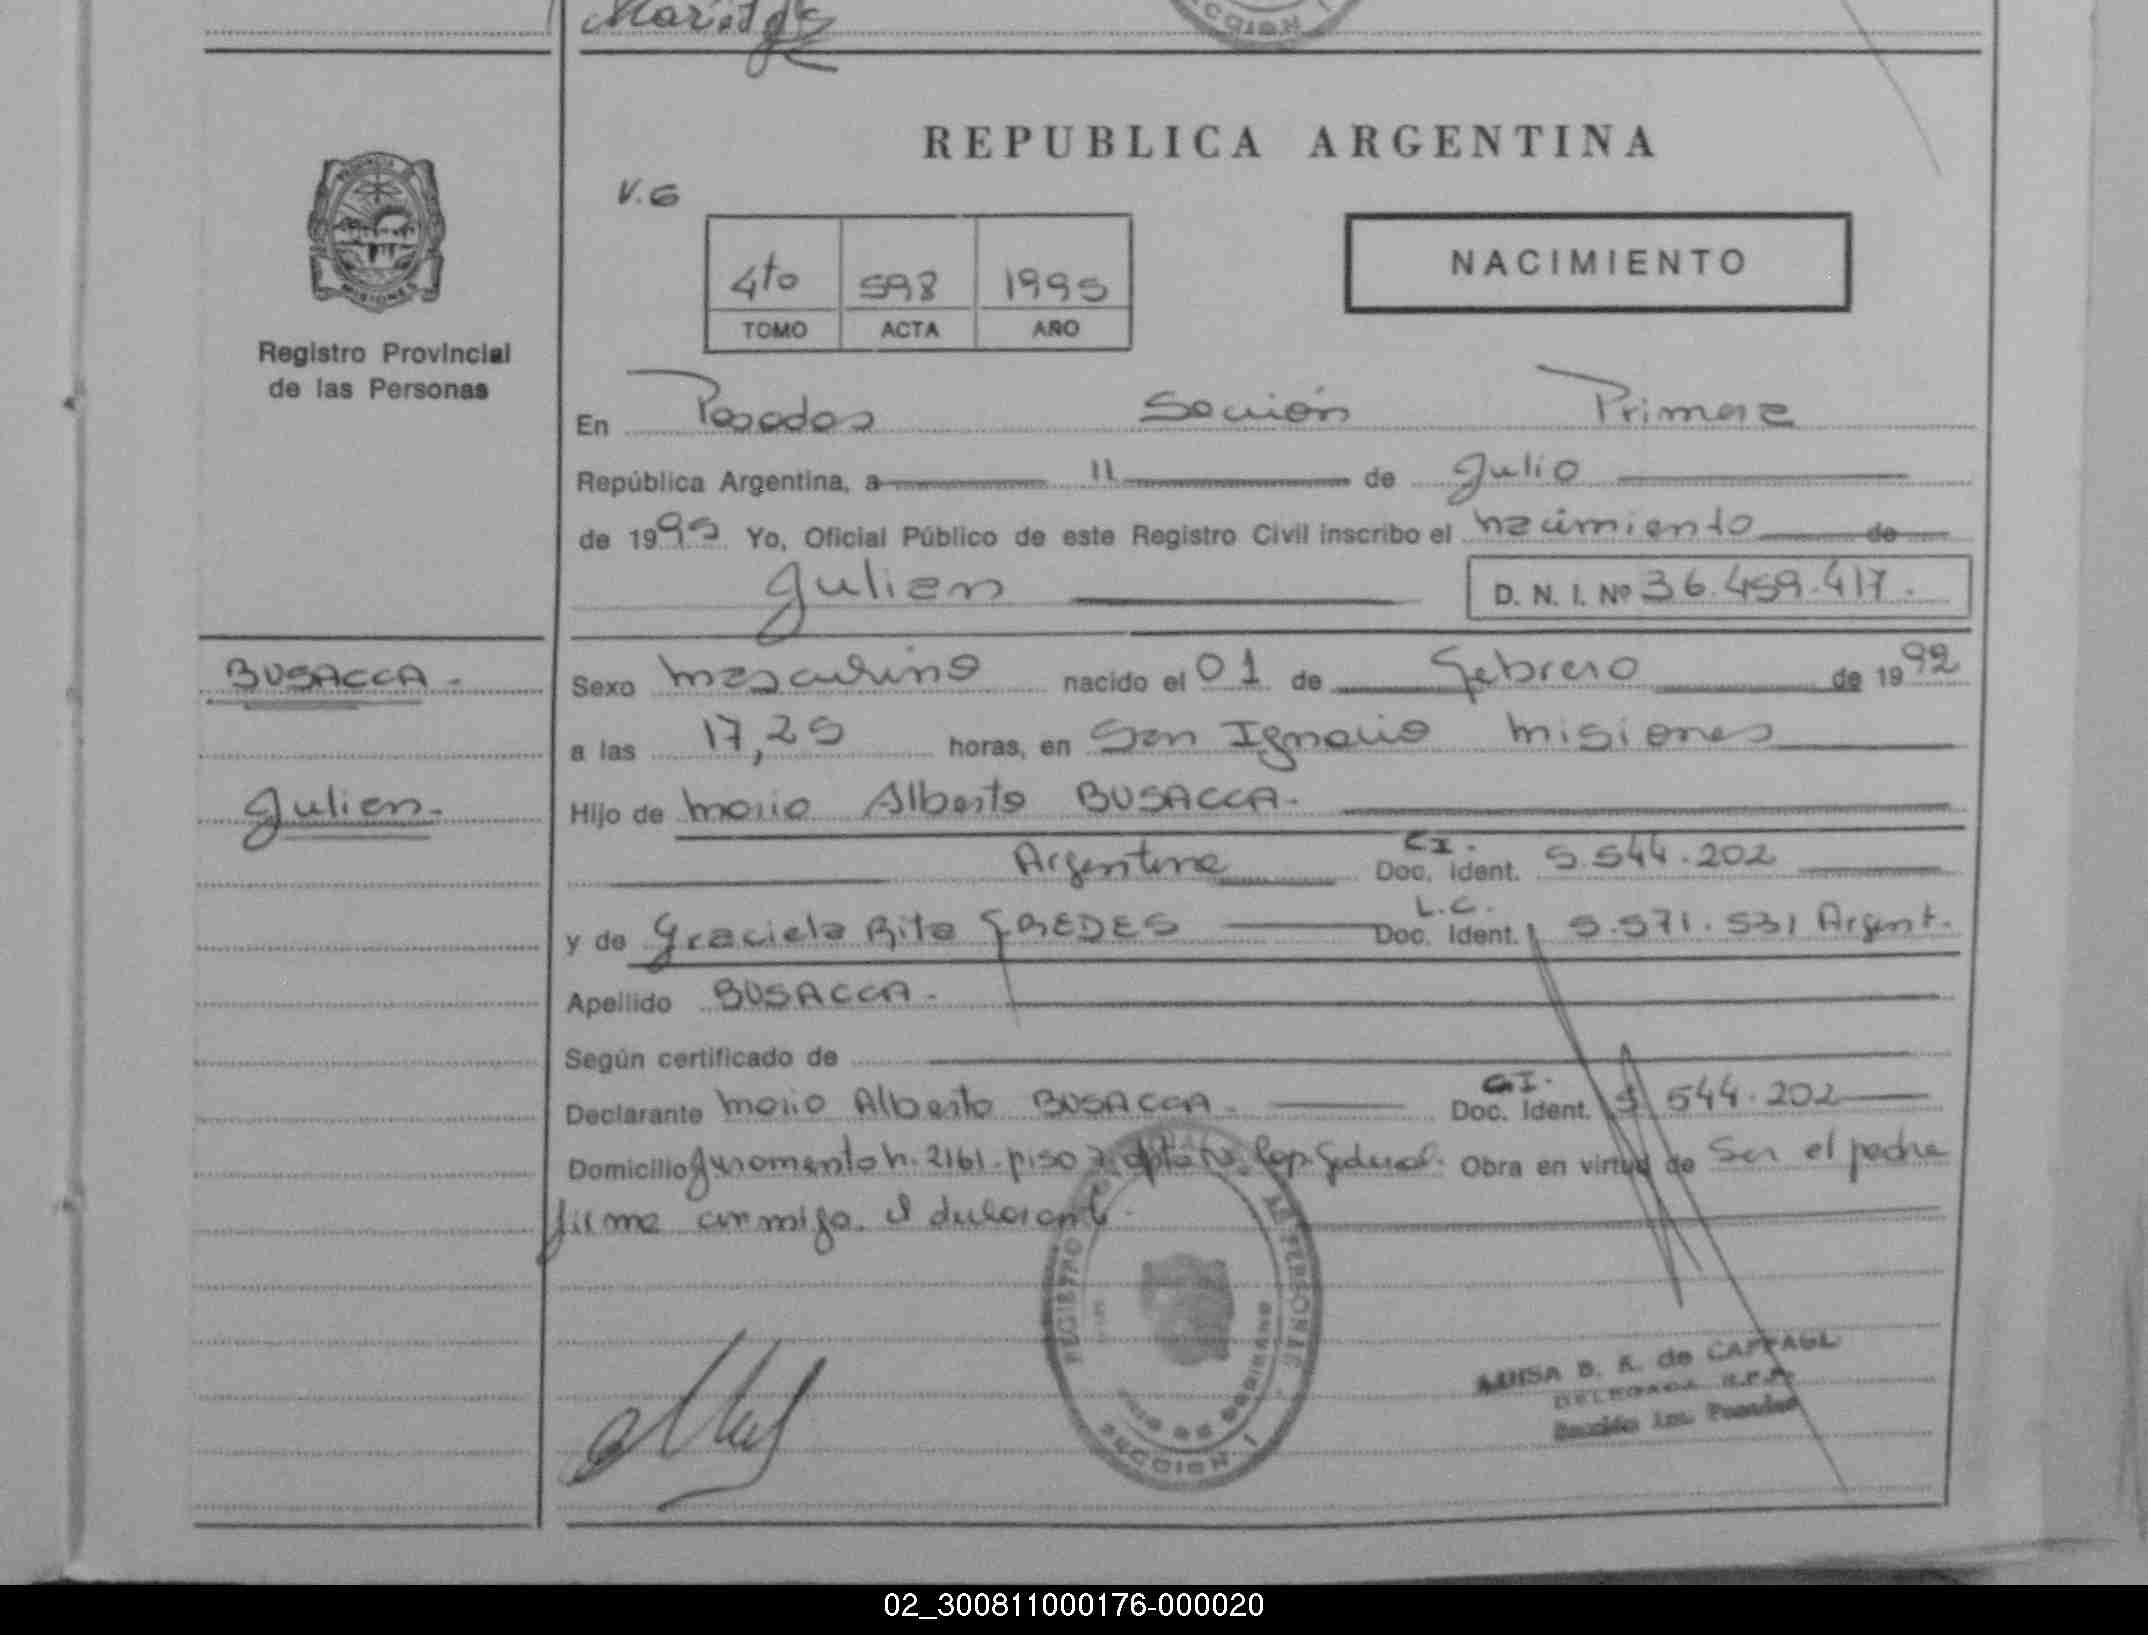 REPUBLICA ARGENTINA
V.G
NACIMIENTO
4to 598 1995
TOMO ACTA AÑO
PROVINCIA
MISIONES
Registro Provincial
de las Personas
En Posadas Sección Primera
República Argentina, a 11 de Julio
de 1995 Yo, Oficial Público de este Registro Civil inscribo el nacimiento de
Julien D. N. I. Nº 36.459.417.
BUSACCA.-
Julien.-
Sexo masculino nacido el 01 de Febrero de 1992
a las 17,25 horas, en San Ignacio Misiones
Hijo de Mario Alberto BUSACCA.-
Argentina C.I. Doc. Ident. 5.544.202
y de Graciela Rita L.C. Doc. Ident. 5.571.531 Argent.
Apellido BUSACCA.-
Según certificado de
Declarante Mario Alberto BUSACCA.- C.I. Doc. Ident. 5.544.202
Domicilio Juramento n. 2161. piso 7 Cap. Federal. Obra en virtud de Ser el padre
firma conmigo el declarante.-
REGISTRO DE LAS PERSONAS
SECCION 1
LUISA B. K. de
DELEGADA R.P.P.
Sección 1ra. Posadas
02_300811000176-000020